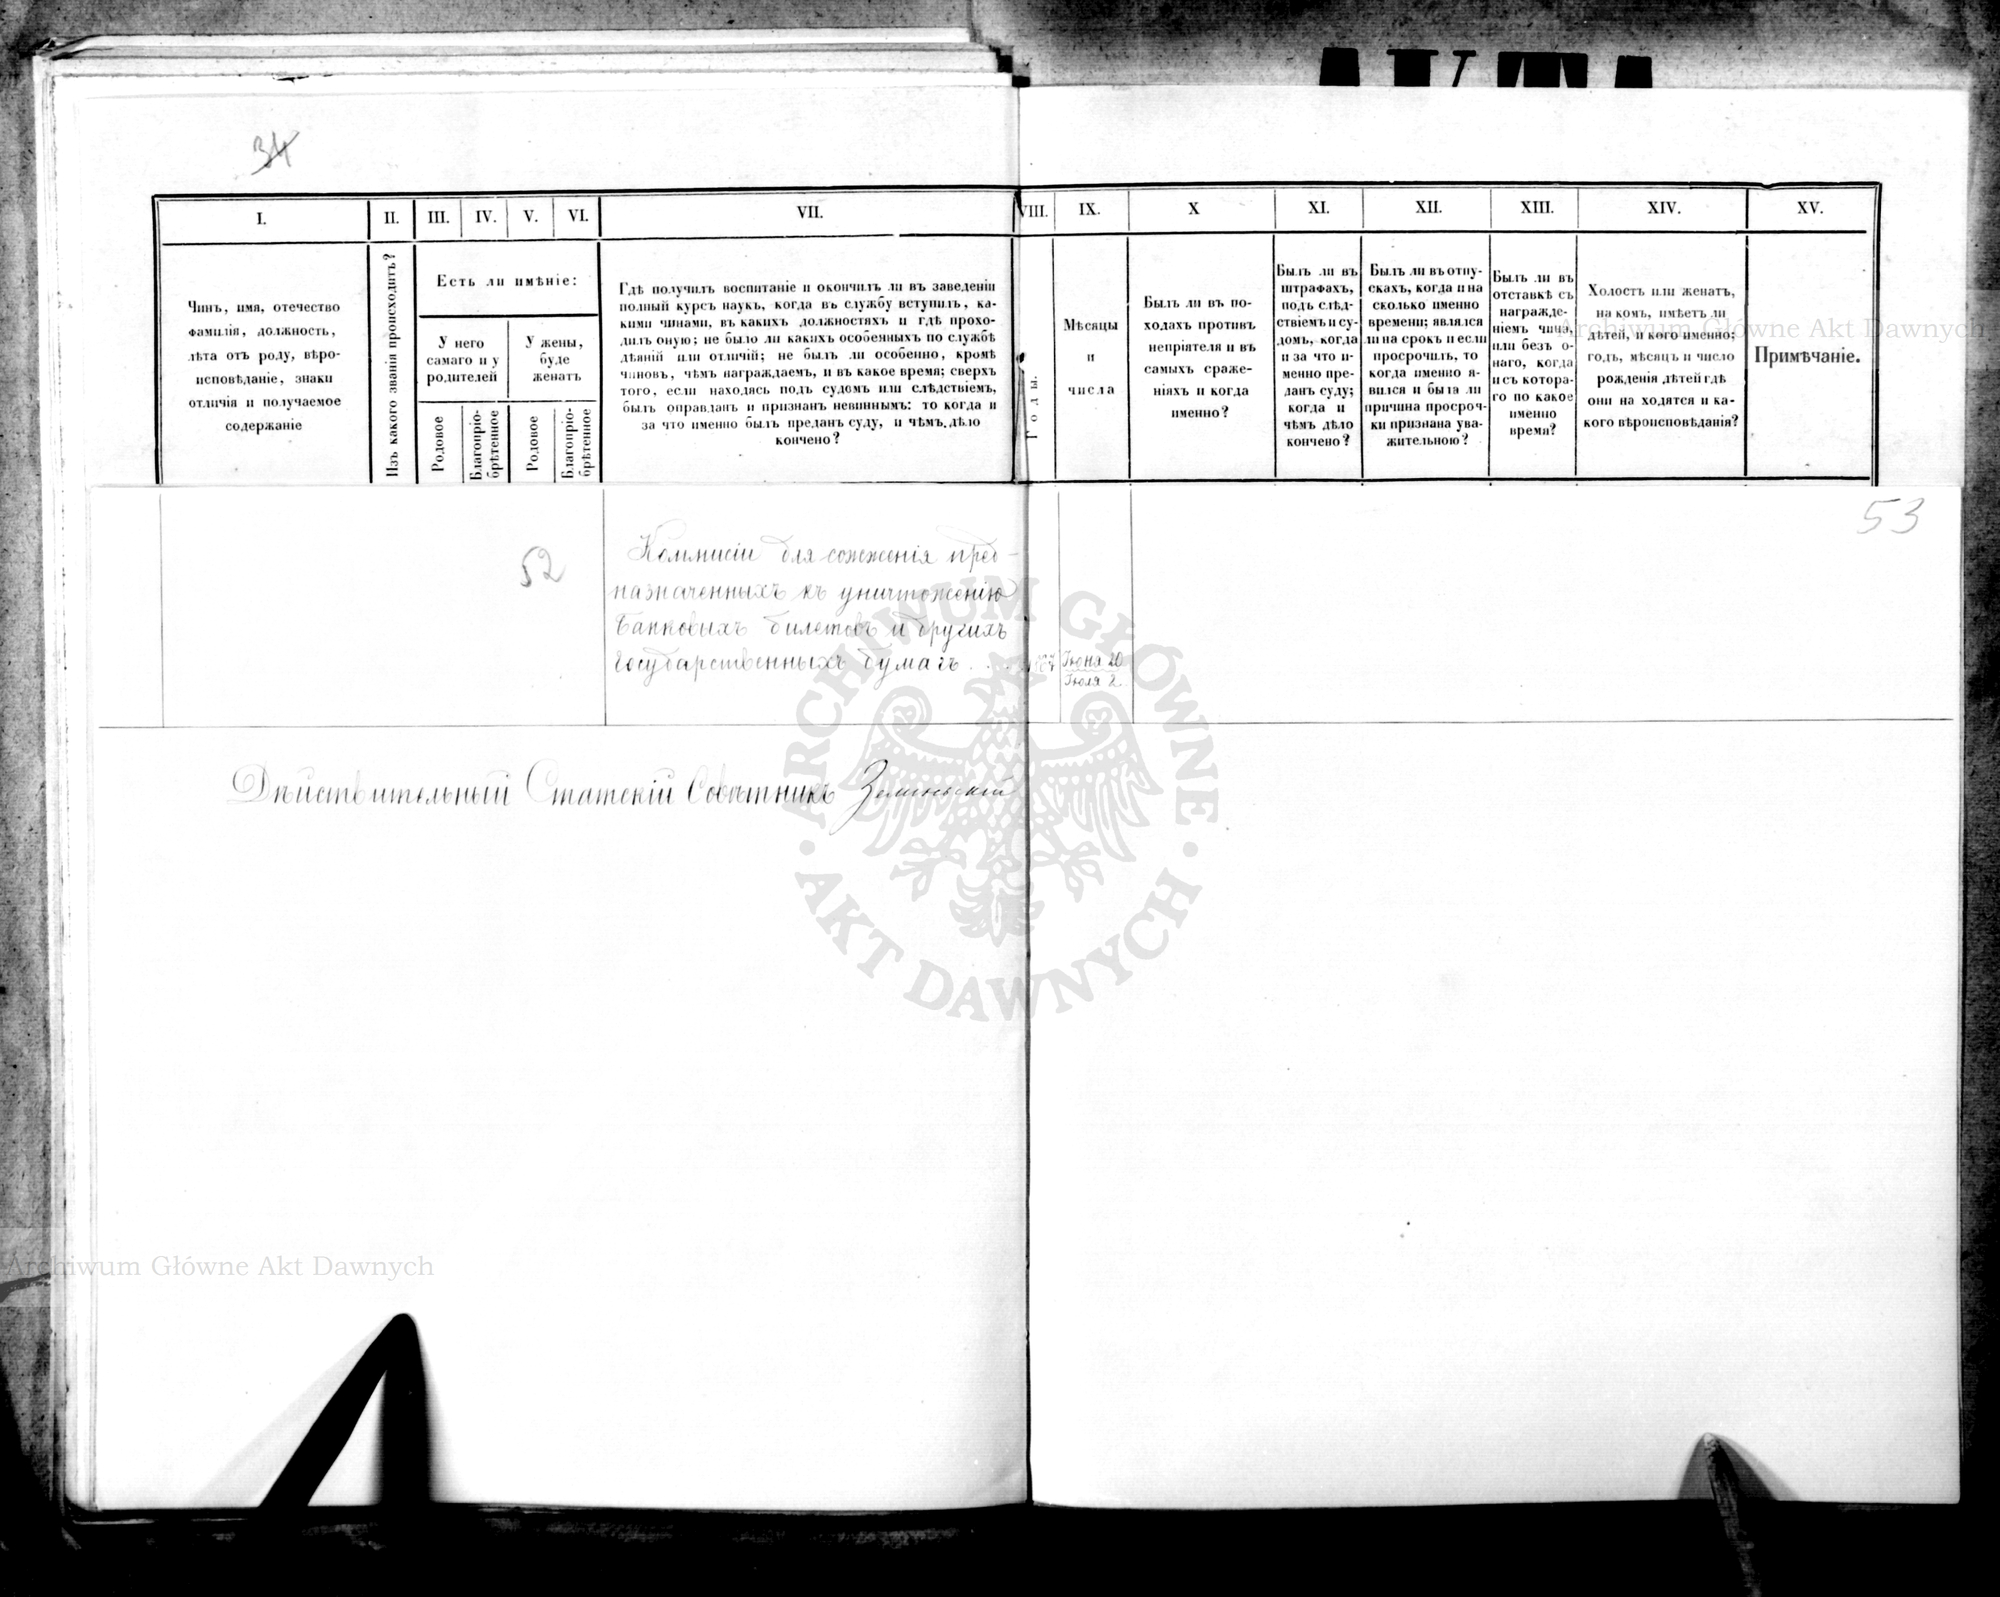 34
I.
II.
III.
IV.
V.
VI.
VII.
VIII.
IX.
X
XI.
XII.
XIII.
XIV.
XV.
Чинъ, имя, отечество
фамилія, должность,
лѣта отъ роду, вѣро-
исповѣданіе, знаки
отличія и получаемое
содержаніе
Изъ какого званія происходитъ?
Есть ли имѣніе:
У него
самаго и у
родителей
У жены,
буде
женатъ
Родовое
Благопріо-
брѣтенное
Родовое
Благопріо-
брѣтенное
Гдѣ получилъ воспитаніе и окончилъ ли въ заведеніи
полный курсъ наукъ, когда въ службу вступилъ, ка-
кими чинами, въ какихъ должностяхъ и гдѣ прохо-
дилъ оную; не было ли какихъ особенныхъ по службѣ
дѣяній или отличій; не былъ ли особенно, кромѣ
чиновъ, чѣмъ награждаемъ, и въ какое время; сверхъ
того, если находясь подъ судомъ или слѣдствіемъ,
былъ оправданъ и признанъ невиннымъ: то когда и
за что именно былъ преданъ суду, и чѣмъ дѣло
кончено?
Годы.
Мѣсяцы
и
числа
Былъ ли въ по-
ходахъ противъ
непріятеля и въ
самыхъ сраже-
ніяхъ и когда
именно?
Былъ ли въ
штрафахъ,
подъ слѣд-
ствіемъ и су-
домъ, когда
и за что и-
менно пре-
данъ суду;
когда и
чѣмъ дѣло
кончено?
Былъ ли въ отпу-
скахъ, когда и на
сколько именно
времени; являлся
ли на срокъ и если
просрочилъ, то
когда именно я-
вился и была ли
причина просроч-
ки признана ува-
жительною?
Былъ ли въ
отставкѣ съ
награжде-
ніемъ чина,
или безъ о-
наго, когда
и съ котора-
го по какое
именно
время?
Холостъ или женатъ,
на комъ, имѣетъ ли
дѣтей, и кого именно;
годъ, мѣсяцъ и число
рожденія дѣтей гдѣ
они находятся и ка-
кого вѣроисповѣданія?
Примѣчаніе.
53
52
Коммисіи для сожженія пред-
назначенныхъ къ уничтоженію
Банковыхъ билетовъ и другихъ
Государственныхъ бумагъ . . .
Іюня 20
Іюля 2
Дѣйствительный Статскій Совѣтникъ
ARCHIWUM GŁÓWNE
AKT DAWNYCH
Archiwum Główne Akt Dawnych
Archiwum Główne Akt Dawnych